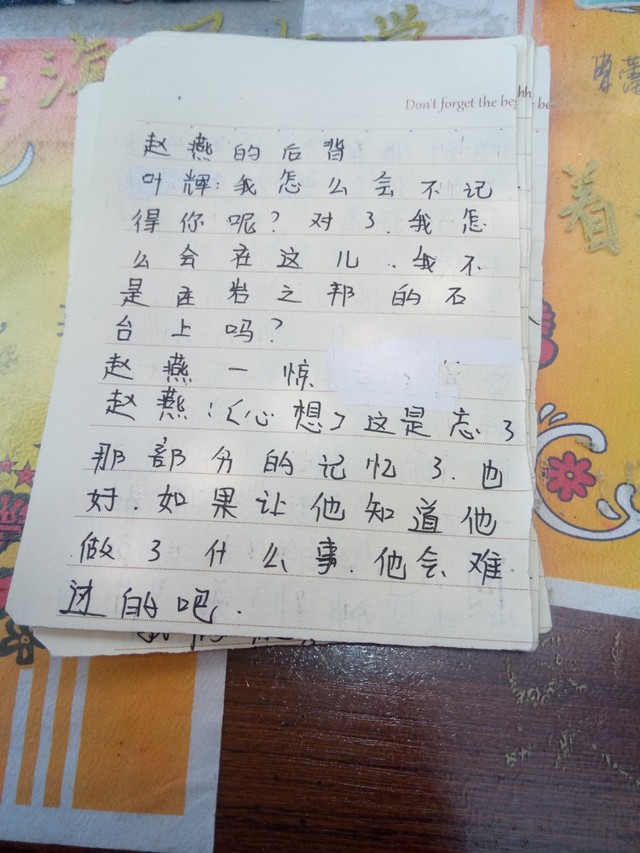 Don't forget the be
赵燕的后背
叶辉:我怎么会不记
得你呢?对了.我怎
么会在这儿.我不
是在岩之邦的石
台上吗?
赵燕一惊
赵燕:(心想)这是忘了
那部分的记忆了.也
好.如果让他知道他
做了什么事.他会难
过的吧.
着